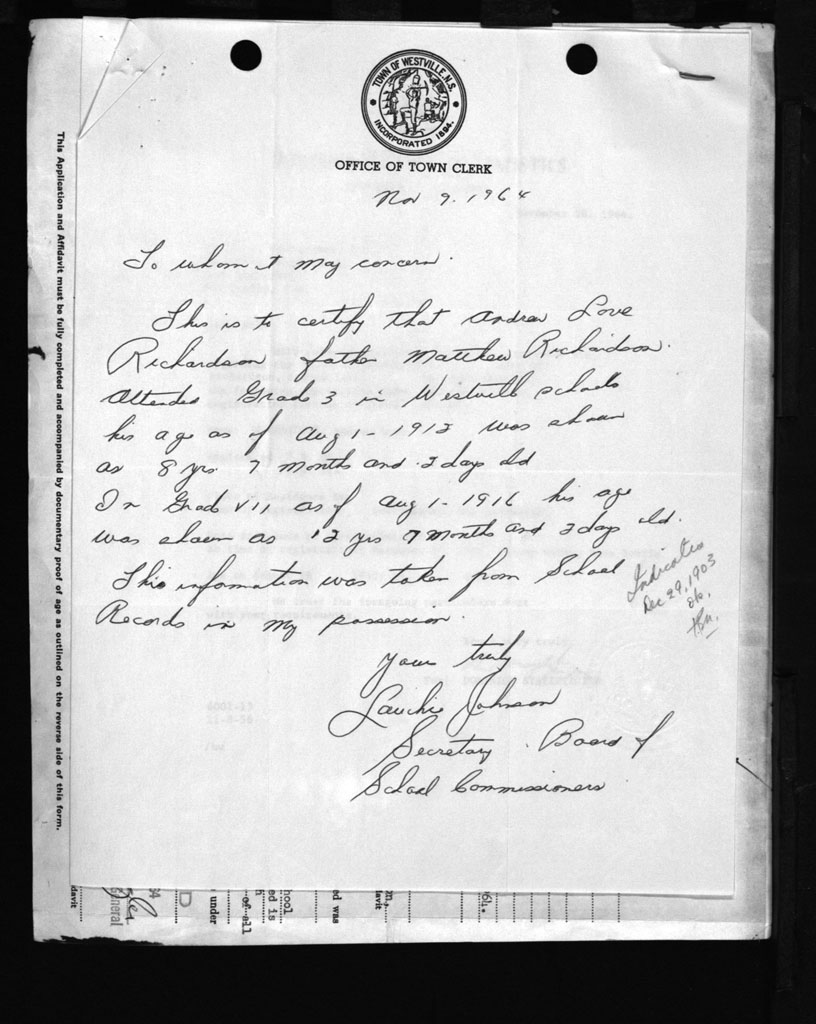 TOWN OF WESTVILLE, N.S.
INCORPORATED 1894.
OFFICE OF TOWN CLERK
Nov 9. 1964
To whom it may concern.
This is to certify that Andrew Love
Richardson father Matthew Richardson.
attended Grade 3 in Westville schools
his age as of Aug 1 - 1912 was shown
as 8 yrs 7 months and 3 days old
In Grade VII as of Aug 1 - 1916 his age
was shown as 12 yrs 7 months and 3 days old.
This information was taken from School
Records in my possession.
Yours truly
Lauchie Johnson
Secretary Board of
School Commissioners
Indicates
Dec 29, 1903
ok.
This Application and Affidavit must be fully completed and accompanied by documentary proof of age as outlined on the reverse side of this form.
6001-13
/hw
davit
General
D
under
of all
hool
ed is
ed was
davit
64.